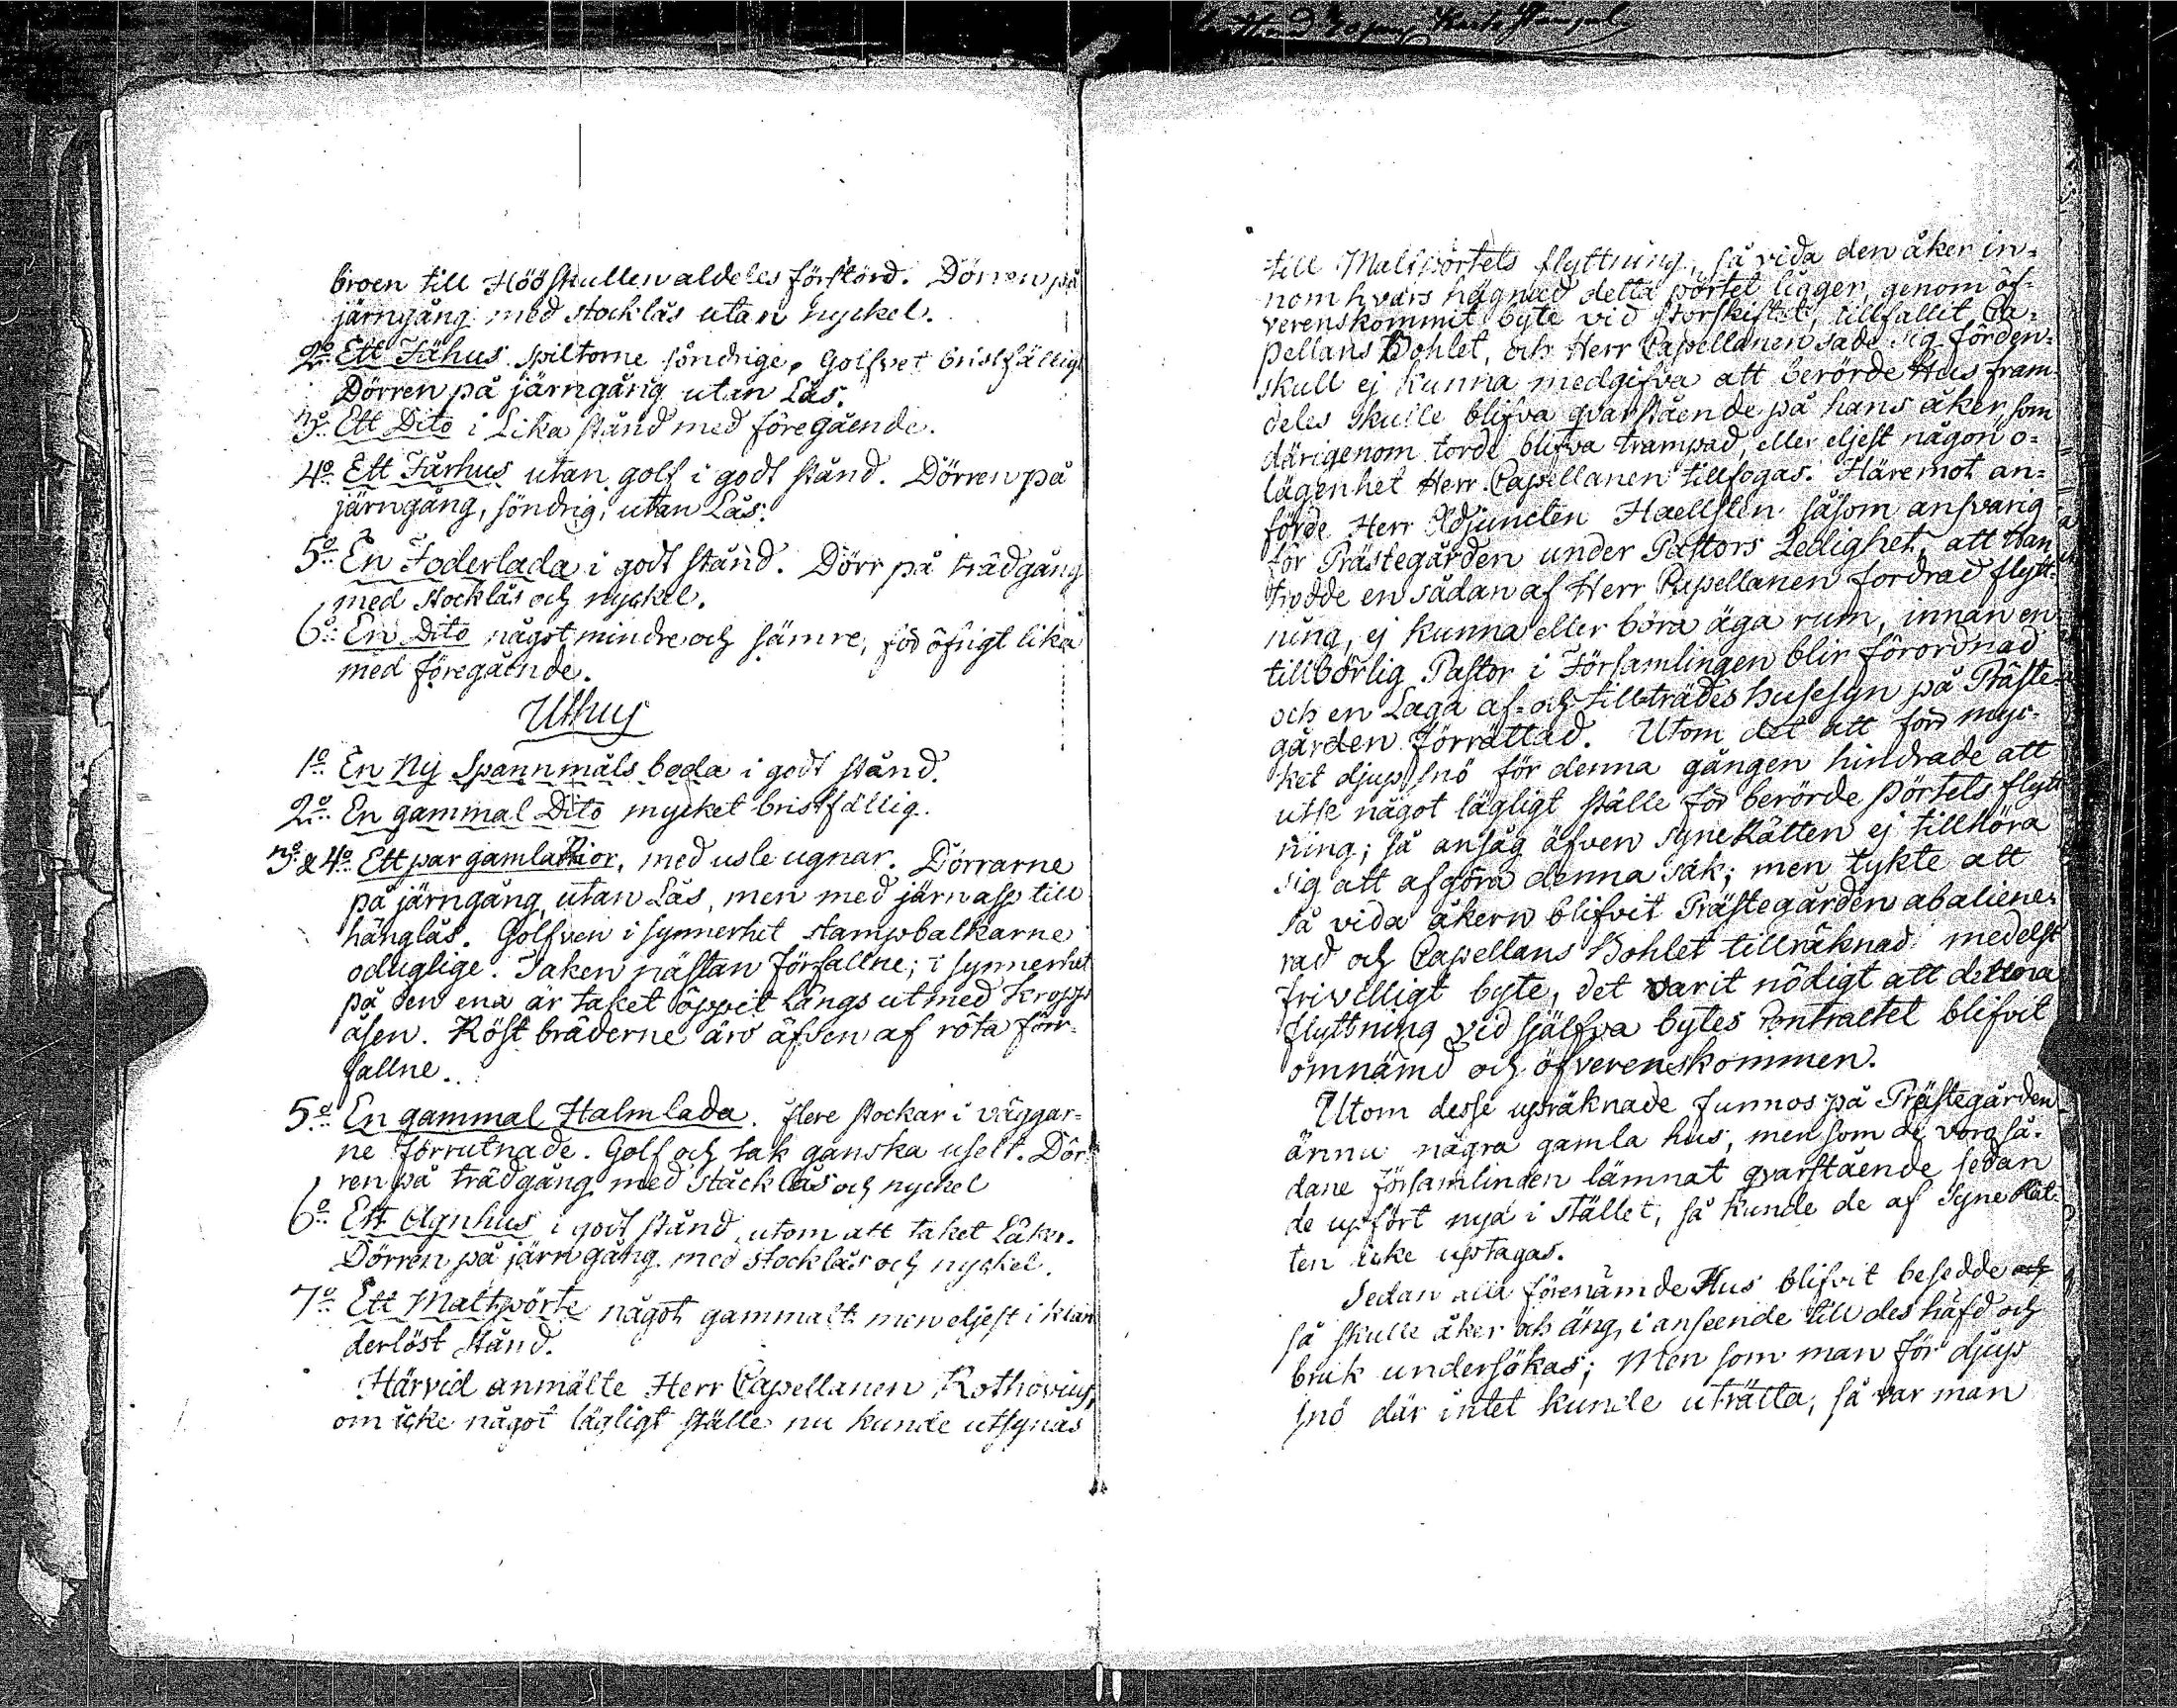 broen till Hööskullen aldeles förstörd. Dörren på
järngång med stocklås utan nyckel.
2o Ett Fähus spiltorne söndrige, Golfvet bristfälligt
Dörren på järngång utan Lås.
3o Ett Dito i Lika stånd med föregående.
4o Ett Fårhus utan golf i godt stånd. Dörren på
järngång, söndrig, utan Lås.
5o En Foderlada i godt stånd. Dörr på trädgång
med stocklås och nyckel.
6o En Dito något mindre och sämre, för öfrigt lika
med föregående.
Uthus
1o En Ny Spannmåls boda i godt stånd.
2o En gammal Dito mycket bristfällig.
3o & 4o Ett par gamla Rior, med usle ugnar. Dörrarne
på järngång, utan Lås, men med järn asp till
hänglås. Golfven i synnerhet stampbalkarne
oduglige. Taken nästan förfallne; i synnerhet
på den ena är taket öppit Långs ut med Kropps
åsen. Röst bräderne äro äfven af röta förr-
fallne.
5o En gammal Halmlada. flere stockar i väggar=
ne förrutnade. Golf och tak ganska uselt. Dör=
ren på trädgång med stäcklås och nyckel
6o Ett Agnhus i godt stånd, utom att taket Läker.
Dörren på järngång med stocklås och nyckel.
7o Ett Maltpörte något gammalt men eljest i klan
derlöst stånd.
Härvid anmälte Herr Capellanen Rothovius,
om icke något lägligt ställe nu kunde utsynas
till Maltpörtets flyttning, så vida den åker in=
nom hvars hägnad detta pörtet ligger, genom öf=
verenskommit byte vid Storskiftet, tillfallit Ca=
pellans Bohlet, och Herr Capellanen sade sig förden=
skull ej kunna medgifva att berörde Hus fram=
deles skulle blifva qvarstående på hans åker, som
därigenom torde blifva trampad, eller eljest någon o=
lägenhet Herr Capellanen tillfogas. Häremot an=
förde Herr Adjuncten Haellsten såsom ansvarig
för Prästegården under Pastors Ledighet, att Han
trodde en sådan af Herr Capellanen fordrad flytt=
ning, ej kunna eller böra äga rum, innan en
tillbörlig Pastor i Församlingen blir förordnad
och en Laga af- och tillträdes husesyn på Präste=
gården förrättad. Utom det att för myc=
ket djup snö för denna gången hindrade att
utse något lägligt ställe för berörde Pörtets flytt
ning; så ansåg äfven Syne Rätten ej tillhöra
sig att afgöra denna sak; men tykte att
så vida åkern blifvit Prästegården abaliene=
rad och Capellans Bohlet tillräknad medelst
frivilligt byte, det varit nödigt att dettora
flyttning vid själfva bytes Contractet blifvit
omnämd och öfverenskommen.
Utom desse upräknade funnos på Prästegården
ännu några gamla hus, men som de voro så=
dane församlinden lämnat qvarstående sedan
de upfört nya i stället, så kunde de af Syne Rät=
ten icke uptagas.
Sedan alla förenämde Hus blifvit besedde och
så skulle åker och äng, i anseende till des häfd och
bruk undersökas; Men som man för djup
snö där intet kunde uträtta, så var man